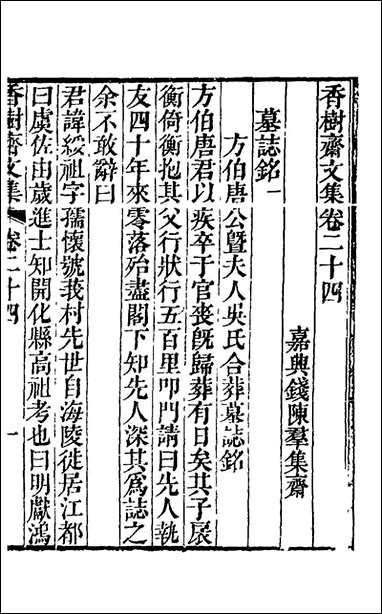 香樹齋文集卷二十四
嘉興錢陳羣集齋
墓誌銘一
方伯唐公暨夫人吳氏合葬墓誌銘
方伯唐君以疾卒于官喪旣歸葬有日矣其子扆
衡倚衡抱其父行狀行五百里叩門請曰先人執
友四十年來零落殆盡閣下知先人深其爲誌之
余不敢辭曰
君諱綏祖字孺懷號莪村先世自海陵徙居江都
曰虞佐由歲進士知開化縣高祖考也曰明獻鴻
香樹齋文集
卷二十四
一